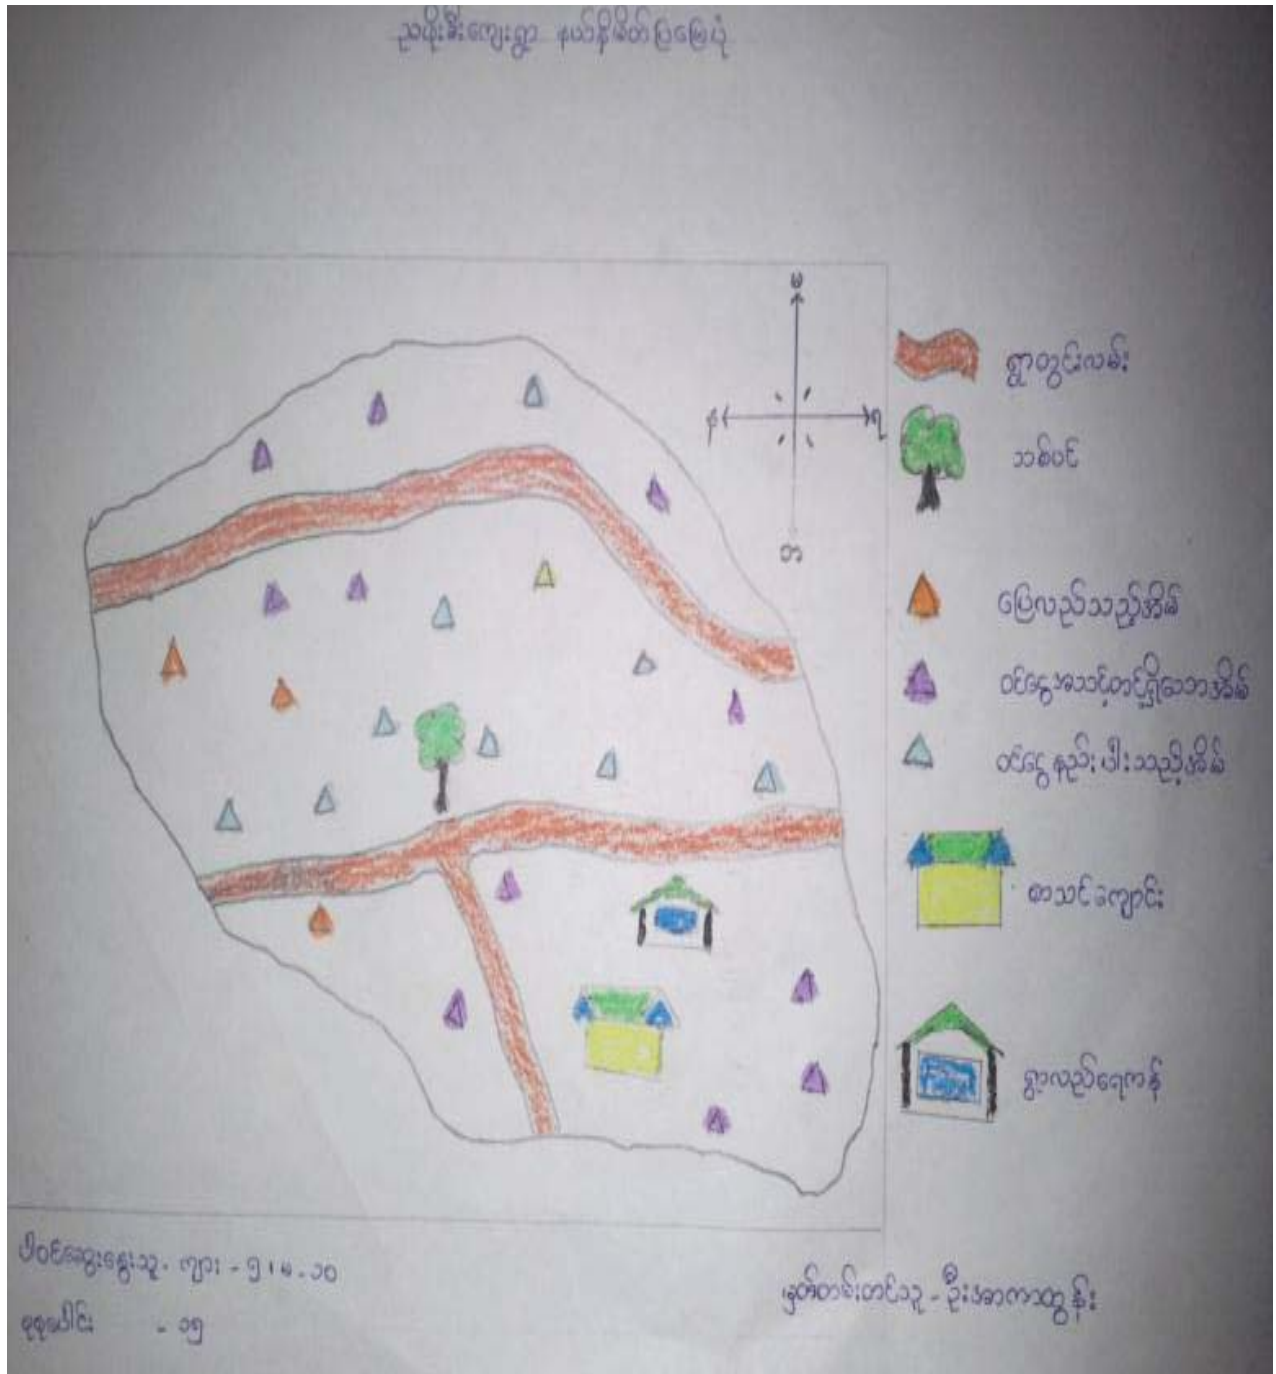 ညဖိုးခီးကျေးရွာ နယ်နိမိတ်ပြမြေပုံ
မ
န
ရ
တ
ရွာတွင်းလမ်း
သစ်ပင်
ပြေလည်သည့်အိမ်
ဝင်ငွေအသင့်တင့်ရှိသောအိမ်
ဝင်ငွေနည်းပါးသည့်အိမ်
စာသင်ကျောင်း
ရွာလည်ရေကန်
ပါဝင်ဆွေးနွေးသူ - ကျား - ၅ ၊ မ - ၁၀
စုစုပေါင်း - ၁၅
မှတ်တမ်းတင်သူ - ဦးအာကာထွန်း